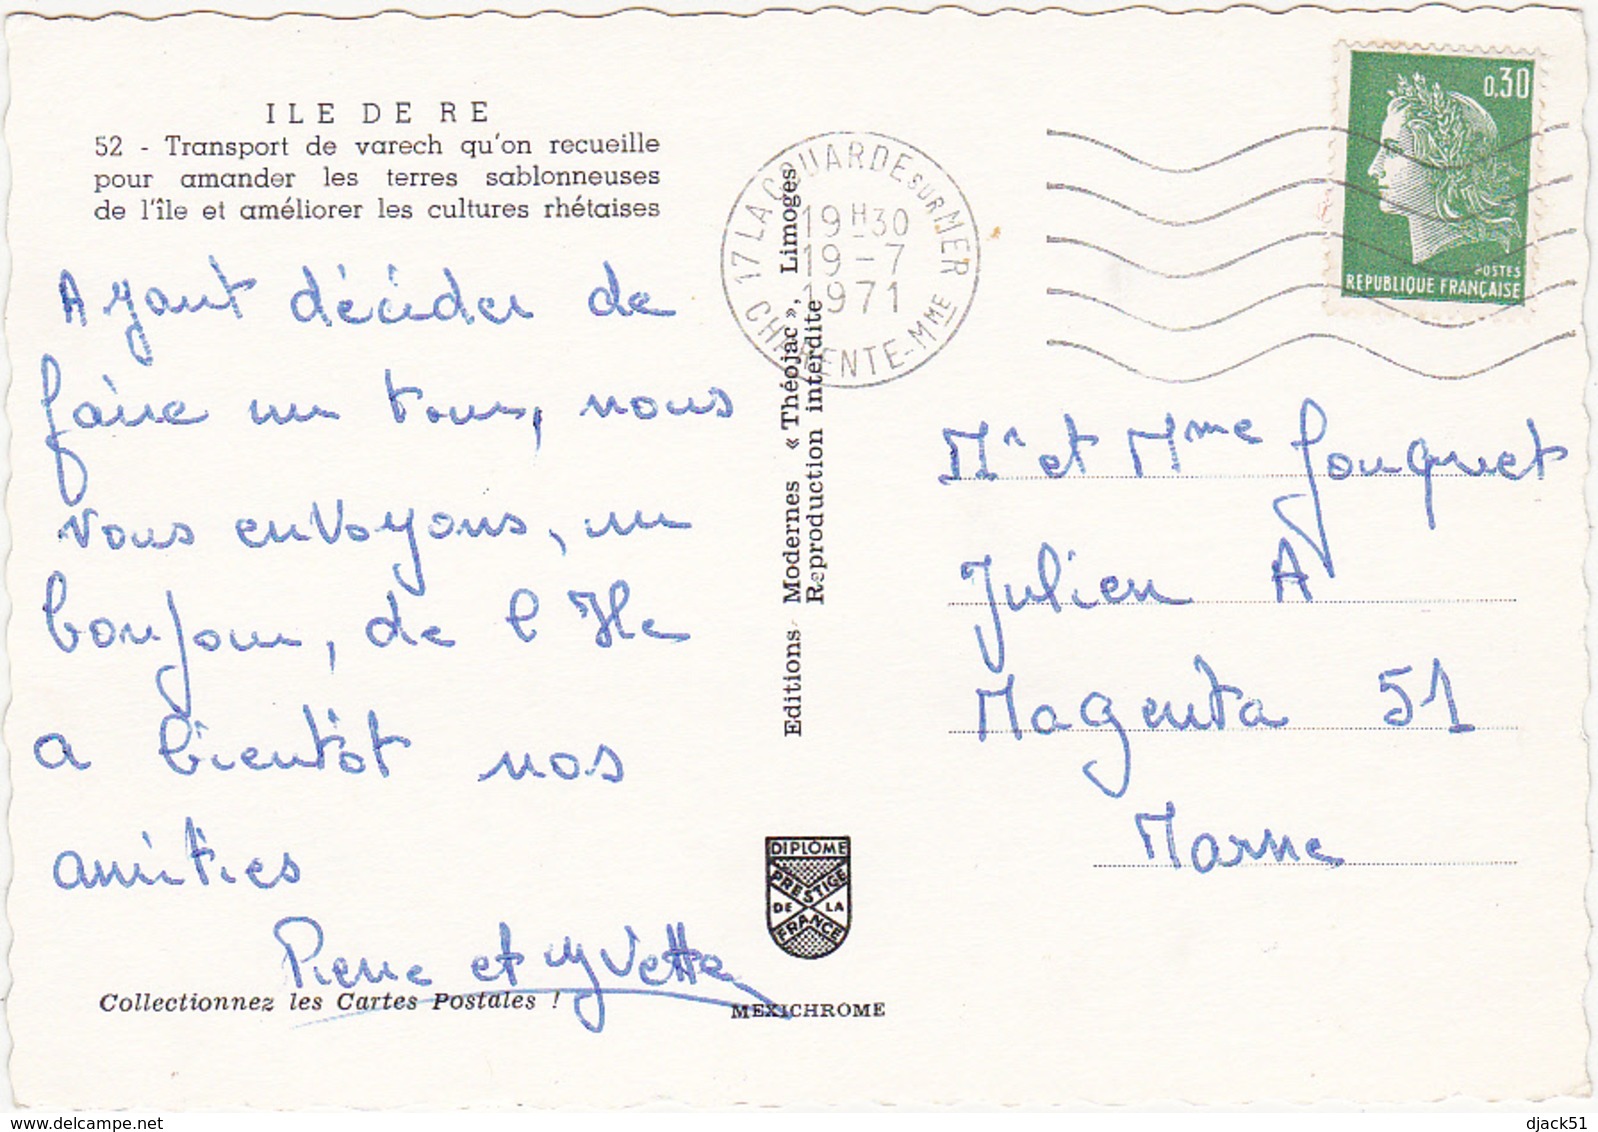 ILE DE RE
52 - Transport de varech qu'on recueille
pour amander les terres sablonneuses
de l'île et améliorer les cultures rhétaises
Ayant décider de
faire un tour, nous
vous envoyons, un
bonjour, de l'Ile
a bientôt nos
amities
Pierre et Yvette
Collectionnez les Cartes Postales !
Editions Modernes « Théojac », Limoges
Reproduction interdite
DIPLÔME
PRESTIGE
DE LA
FRANCE
MEXICHROME
17 LA COUARDE SUR MER
19H30
19-7
1971
CHARENTE-MME
0,30
POSTES
REPUBLIQUE FRANÇAISE
Mr et Mme Fouquet
Julien A
Magenta 51
Marne
djack51